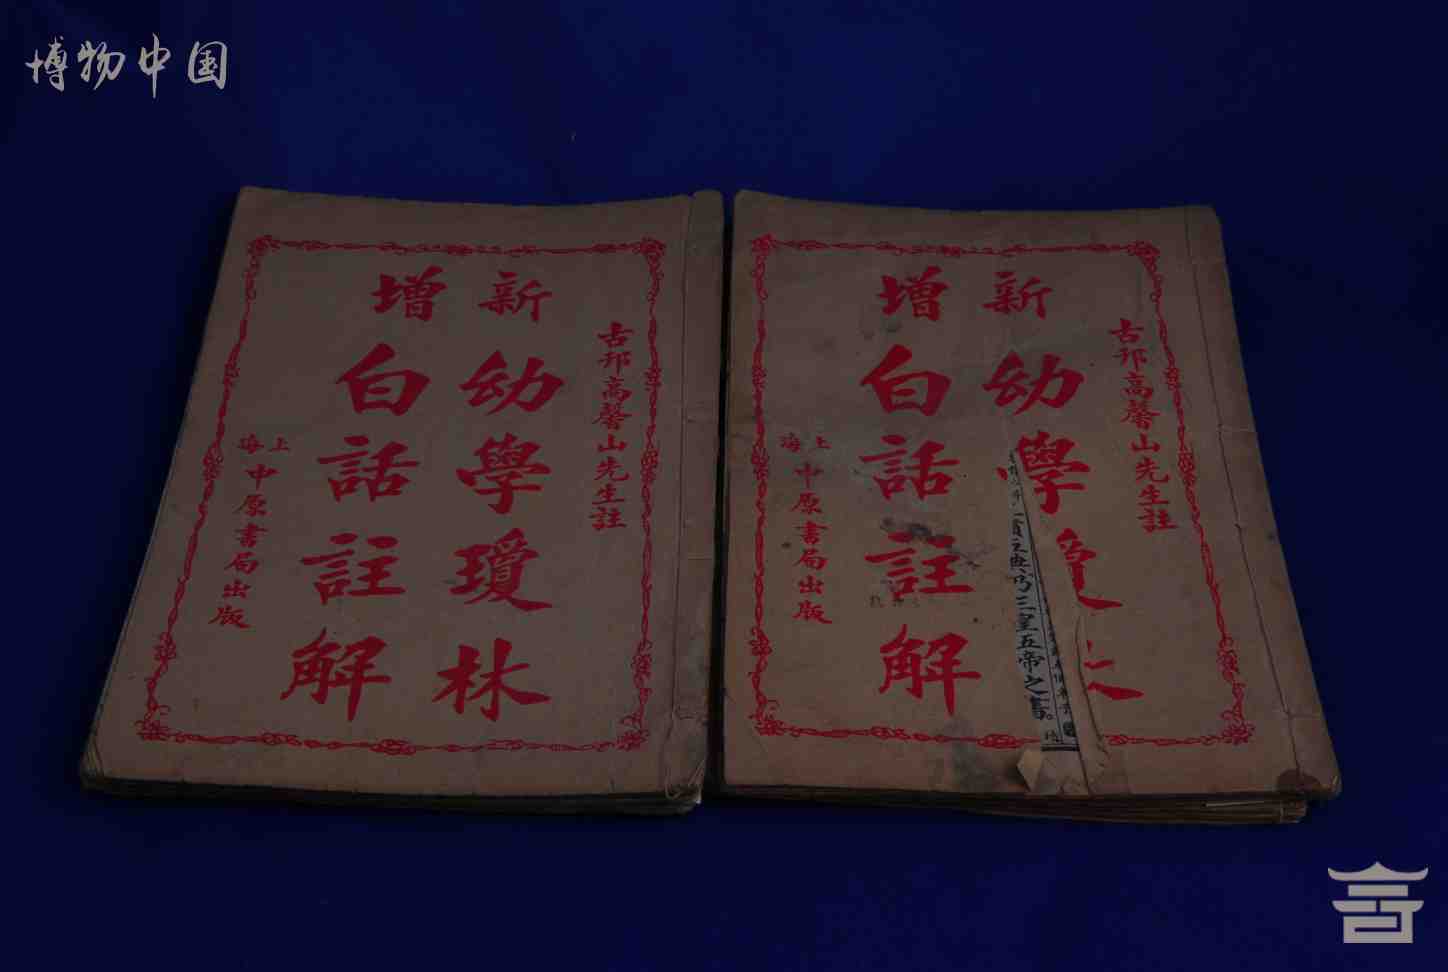 博物中国
古邘高馨山先生註
新增
幼學瓊林
白話註解
上海
中原書局出版
古邘高馨山先生註
新增
幼學
白話註解
上海
中原書局出版
三皇五帝之書。